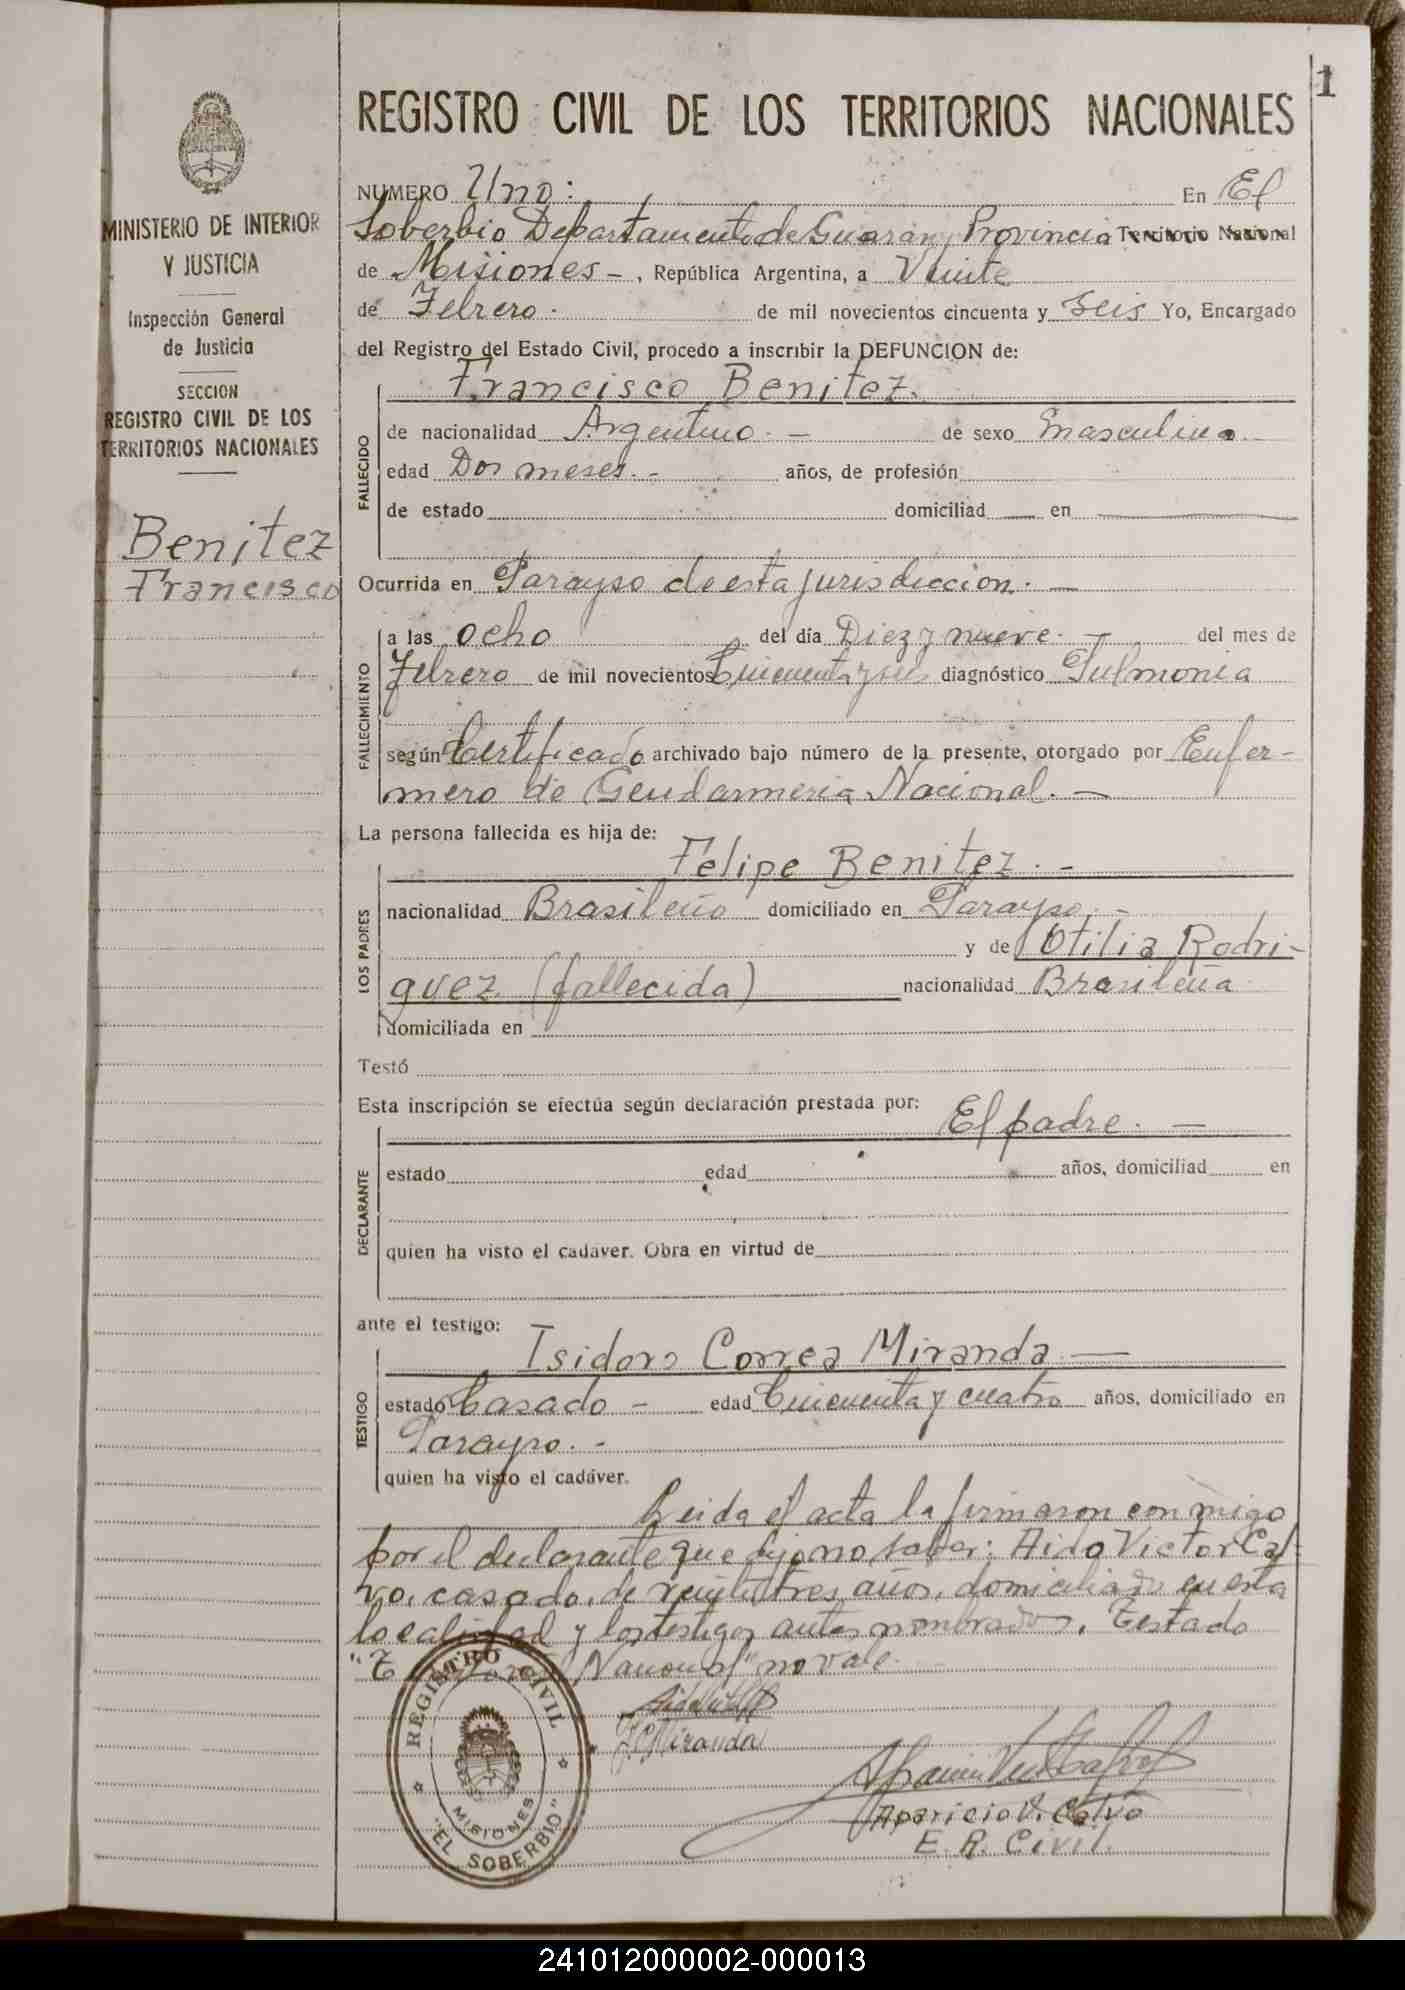 1
MINISTERIO DE INTERIOR
Y JUSTICIA
Inspección General
de Justicia
SECCION
REGISTRO CIVIL DE LOS
TERRITORIOS NACIONALES
Benitez
Francisco
REGISTRO CIVIL DE LOS TERRITORIOS NACIONALES
NUMERO Uno: En El
Soberbio Departamento de Guarany Provincia Territorio Nacional
de Misiones - , República Argentina, a Veinte
de Febrero. de mil novecientos cincuenta y seis Yo, Encargado
del Registro del Estado Civil, procedo a inscribir la DEFUNCION de:
Francisco Benitez.
FALLECIDO
de nacionalidad Argentino. - de sexo masculino.
edad Dos meses. - años, de profesión
de estado domiciliad en
Ocurrida en Parayso de esta jurisdiccion. -
FALLECIMIENTO
a las ocho del día Diez y nueve. - del mes de
Febrero de mil novecientos Cincuenta y seis diagnóstico Pulmonia
según Certificado archivado bajo número de la presente, otorgado por Enfer-
mero de Gendarmeria Nacional. -
La persona fallecida es hija de:
Felipe Benitez. -
LOS PADRES
nacionalidad Brasileño domiciliado en Parayso. -
y de Otilia Rodri-
guez (fallecida) nacionalidad Brasileña
domiciliada en
Testó
Esta inscripción se efectúa según declaración prestada por:
El padre. -
DECLARANTE
estado edad años, domiciliad en
quien ha visto el cadáver. Obra en virtud de
ante el testigo:
Isidoro Correa Miranda -
TESTIGO
estado Casado - edad Cincuenta y cuatro años, domiciliado en
Parayso. -
quien ha visto el cadáver.
Leida el acta la firmaron conmigo
por el declarante que dijo no saber: Aido Victor Cal-
vo, casado, de veintitres años, domiciliado en esta
localidad y los testigos antes nombrados. Testado
"Territorio Nacional" no vale.
I.C. Miranda
Aparicio V. Calvo
E. R. Civil.
REGISTRO CIVIL
MISIONES
"EL SOBERBIO"
241012000002-000013